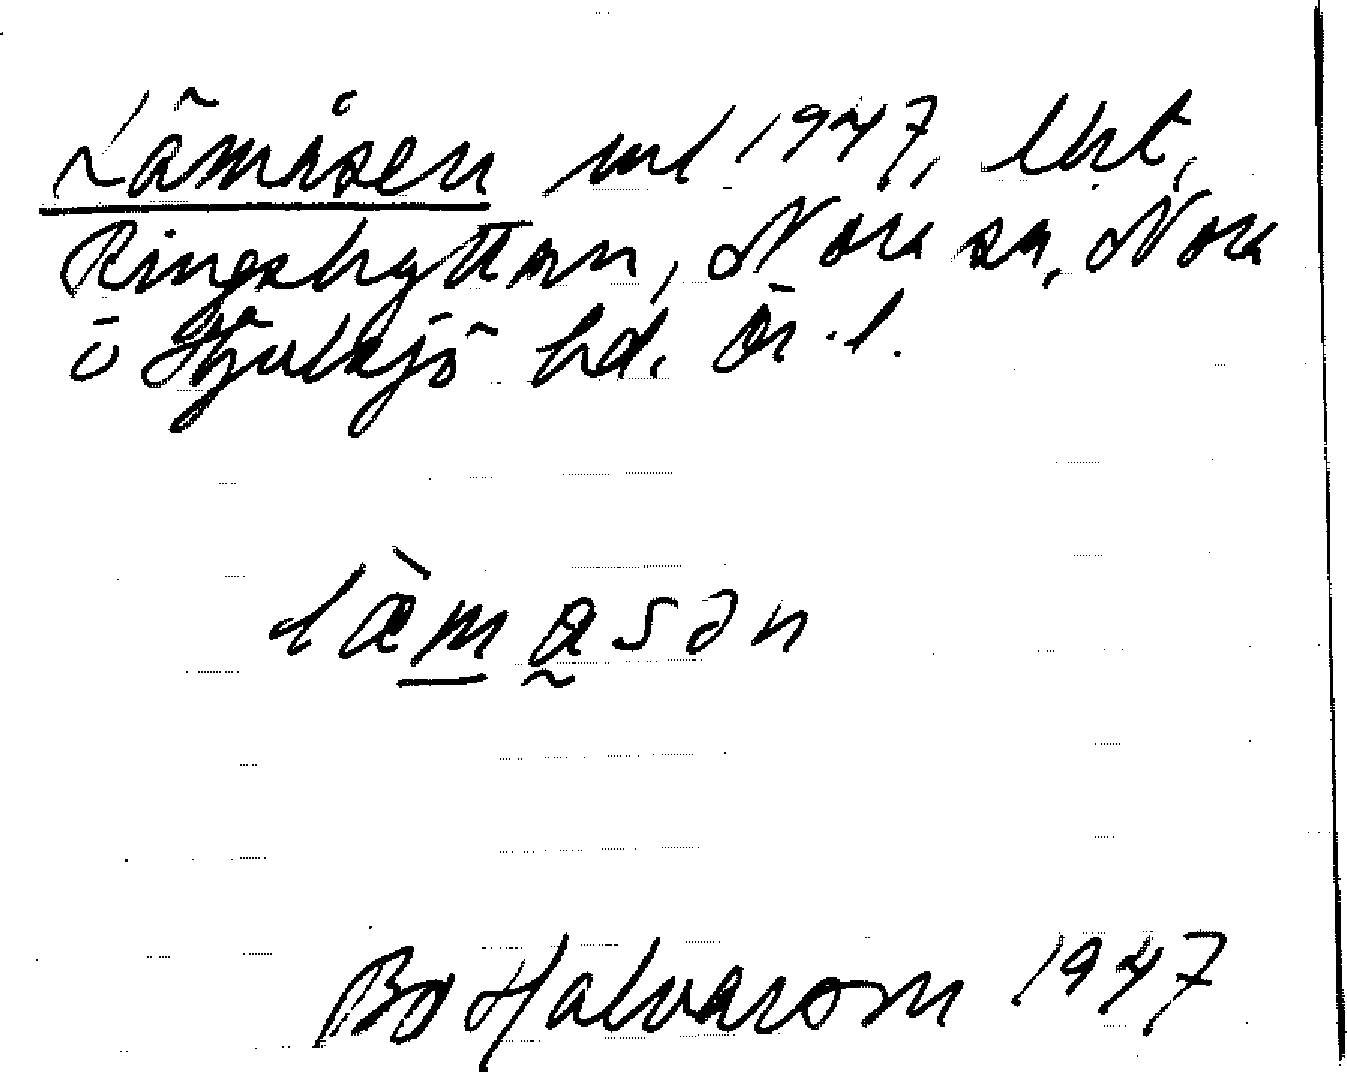 Lämåsen uml 1947, Urt,
Ringshyttan, Nora sn, Nora
o Hjulsjö hd. Ör. l.
lä̀måsən
Bo Halvarson 1947